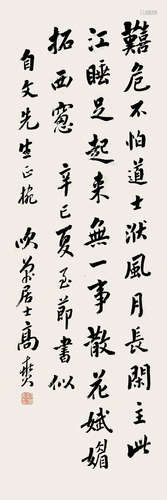 囏危不怕道士洑風月長閑主此
江睡足起来無一事散花娬媚
拓西窻 辛巳夏至節書似
自文先生正捥 吹萬居士高燮